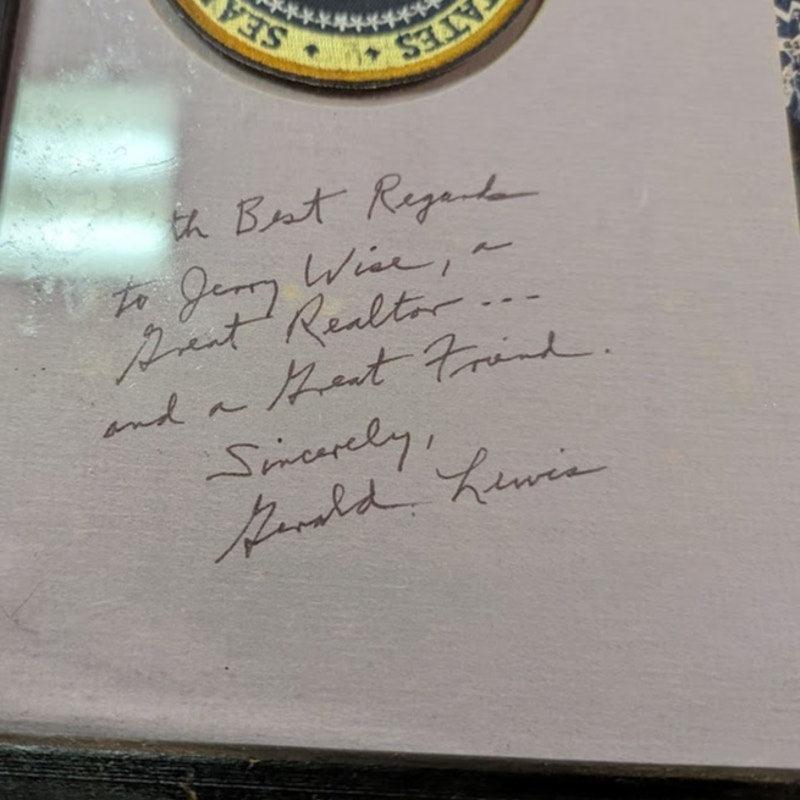 SEA
TATES
th Best Regards
to Jerry Wise, a
Great Realtor ---
and a Great Friend.
Sincerely,
Gerald Lewis